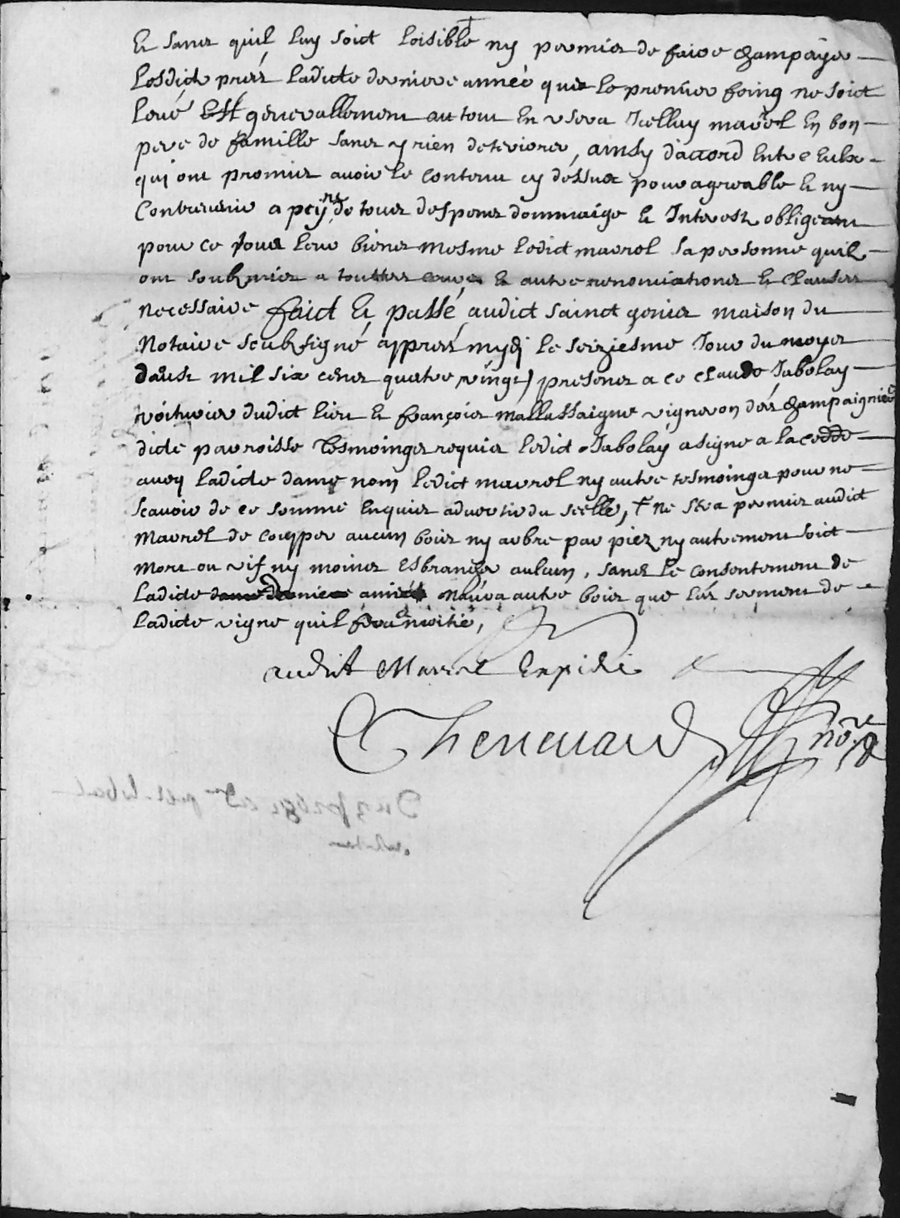 Et sans quil luy soict loisible ny permis de faire champayer
Lesdicts prers ladicte derniere année que le premier foing ne soict
levé Et generallement au tout En usera Icelluy maurel En bon
pere de famille sans y rien deteriorer, ainsy daccord Entre Eulx
qui ont promis avoir le contenu cy dessus pour agreable & ny
Contrevenir a peyne de tous despens dommaige & Interest obligeant
pour ce tous leurs biens mesme ledict maurel sa personne quil
ont soubzmis a touttes cours & autre renonciations & clauses
necessaire faict & passé audict sainct genies maison du
Notaire soubsigné appres mydi le seiziesme Jour du moys
daust mil six cens quatre vingt, presens a ce claude Jabolay
voiturier dudict lieu & françois mallassaigne vigneron des champaignies
dicte parroisse tesmoings requis ledict Jabolay a signe a la cedde
avecq ladicte dame non ledict maurel ny autre tesmoings pour ne
scavoir de ce sommé Enquis advertis du seelle, + ne sera permis audict
Maurel de coupper aucun bois ny arbre par piez ny autrement soict
mort ou vif ny moins Esbrancher aulcun, sans le consentement de
ladicte dame naura autre bois que les serment de
ladicte vigne quil fera moitié,
audit Maurel Expedié
Chenevard nore